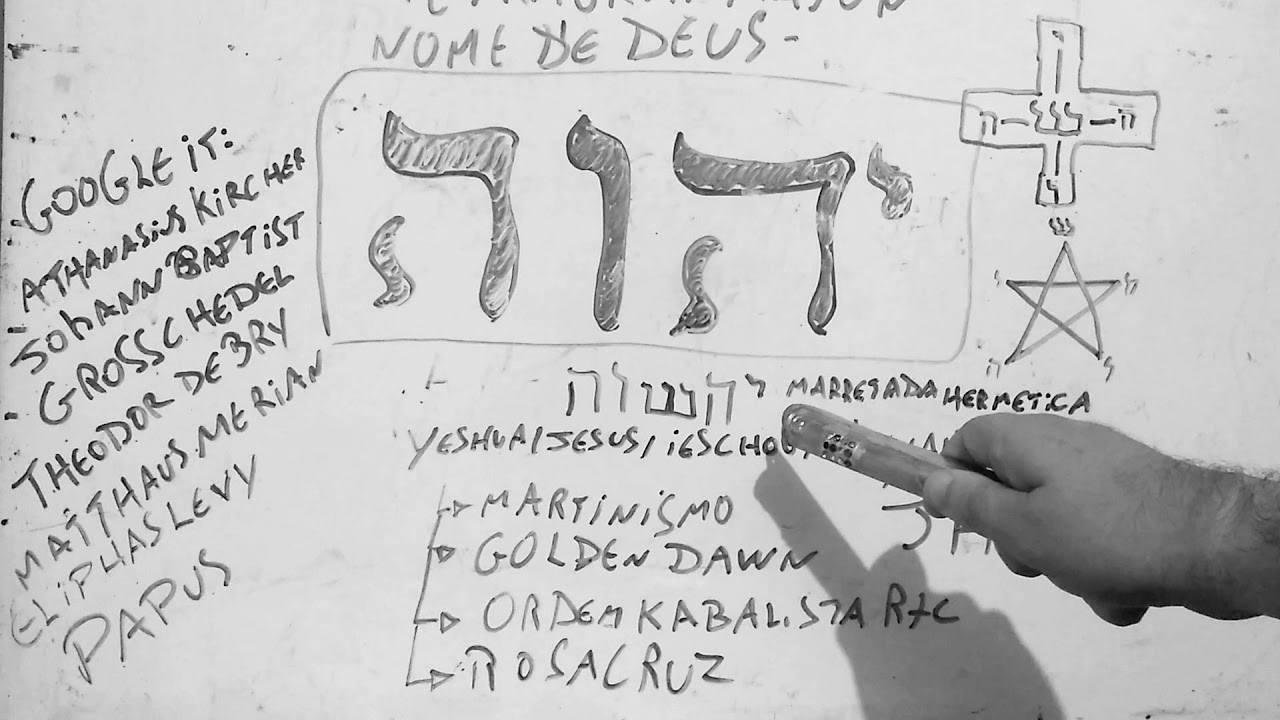 NOME DE DEUS-
יהוה
ה-ש-ה
GOOGLE IT:
ATHANASIUS KIRCHER
JOHANN BAPTIST
- GROSSCHEDEL
- THEODOR DE BRY
MATTHAUS MERIAN
ELIPHAS LEVY
PAPUS
יהשוה MARRETADA HERMETICA
YESHUA/JESUS/IESCHOU
MARTINISMO
GOLDEN DAWN
ORDEM KABALISTA R+C
ROSACRUZ